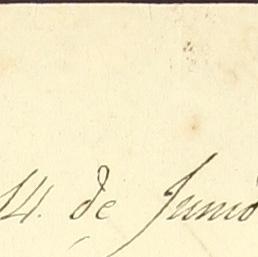 14. de Junio